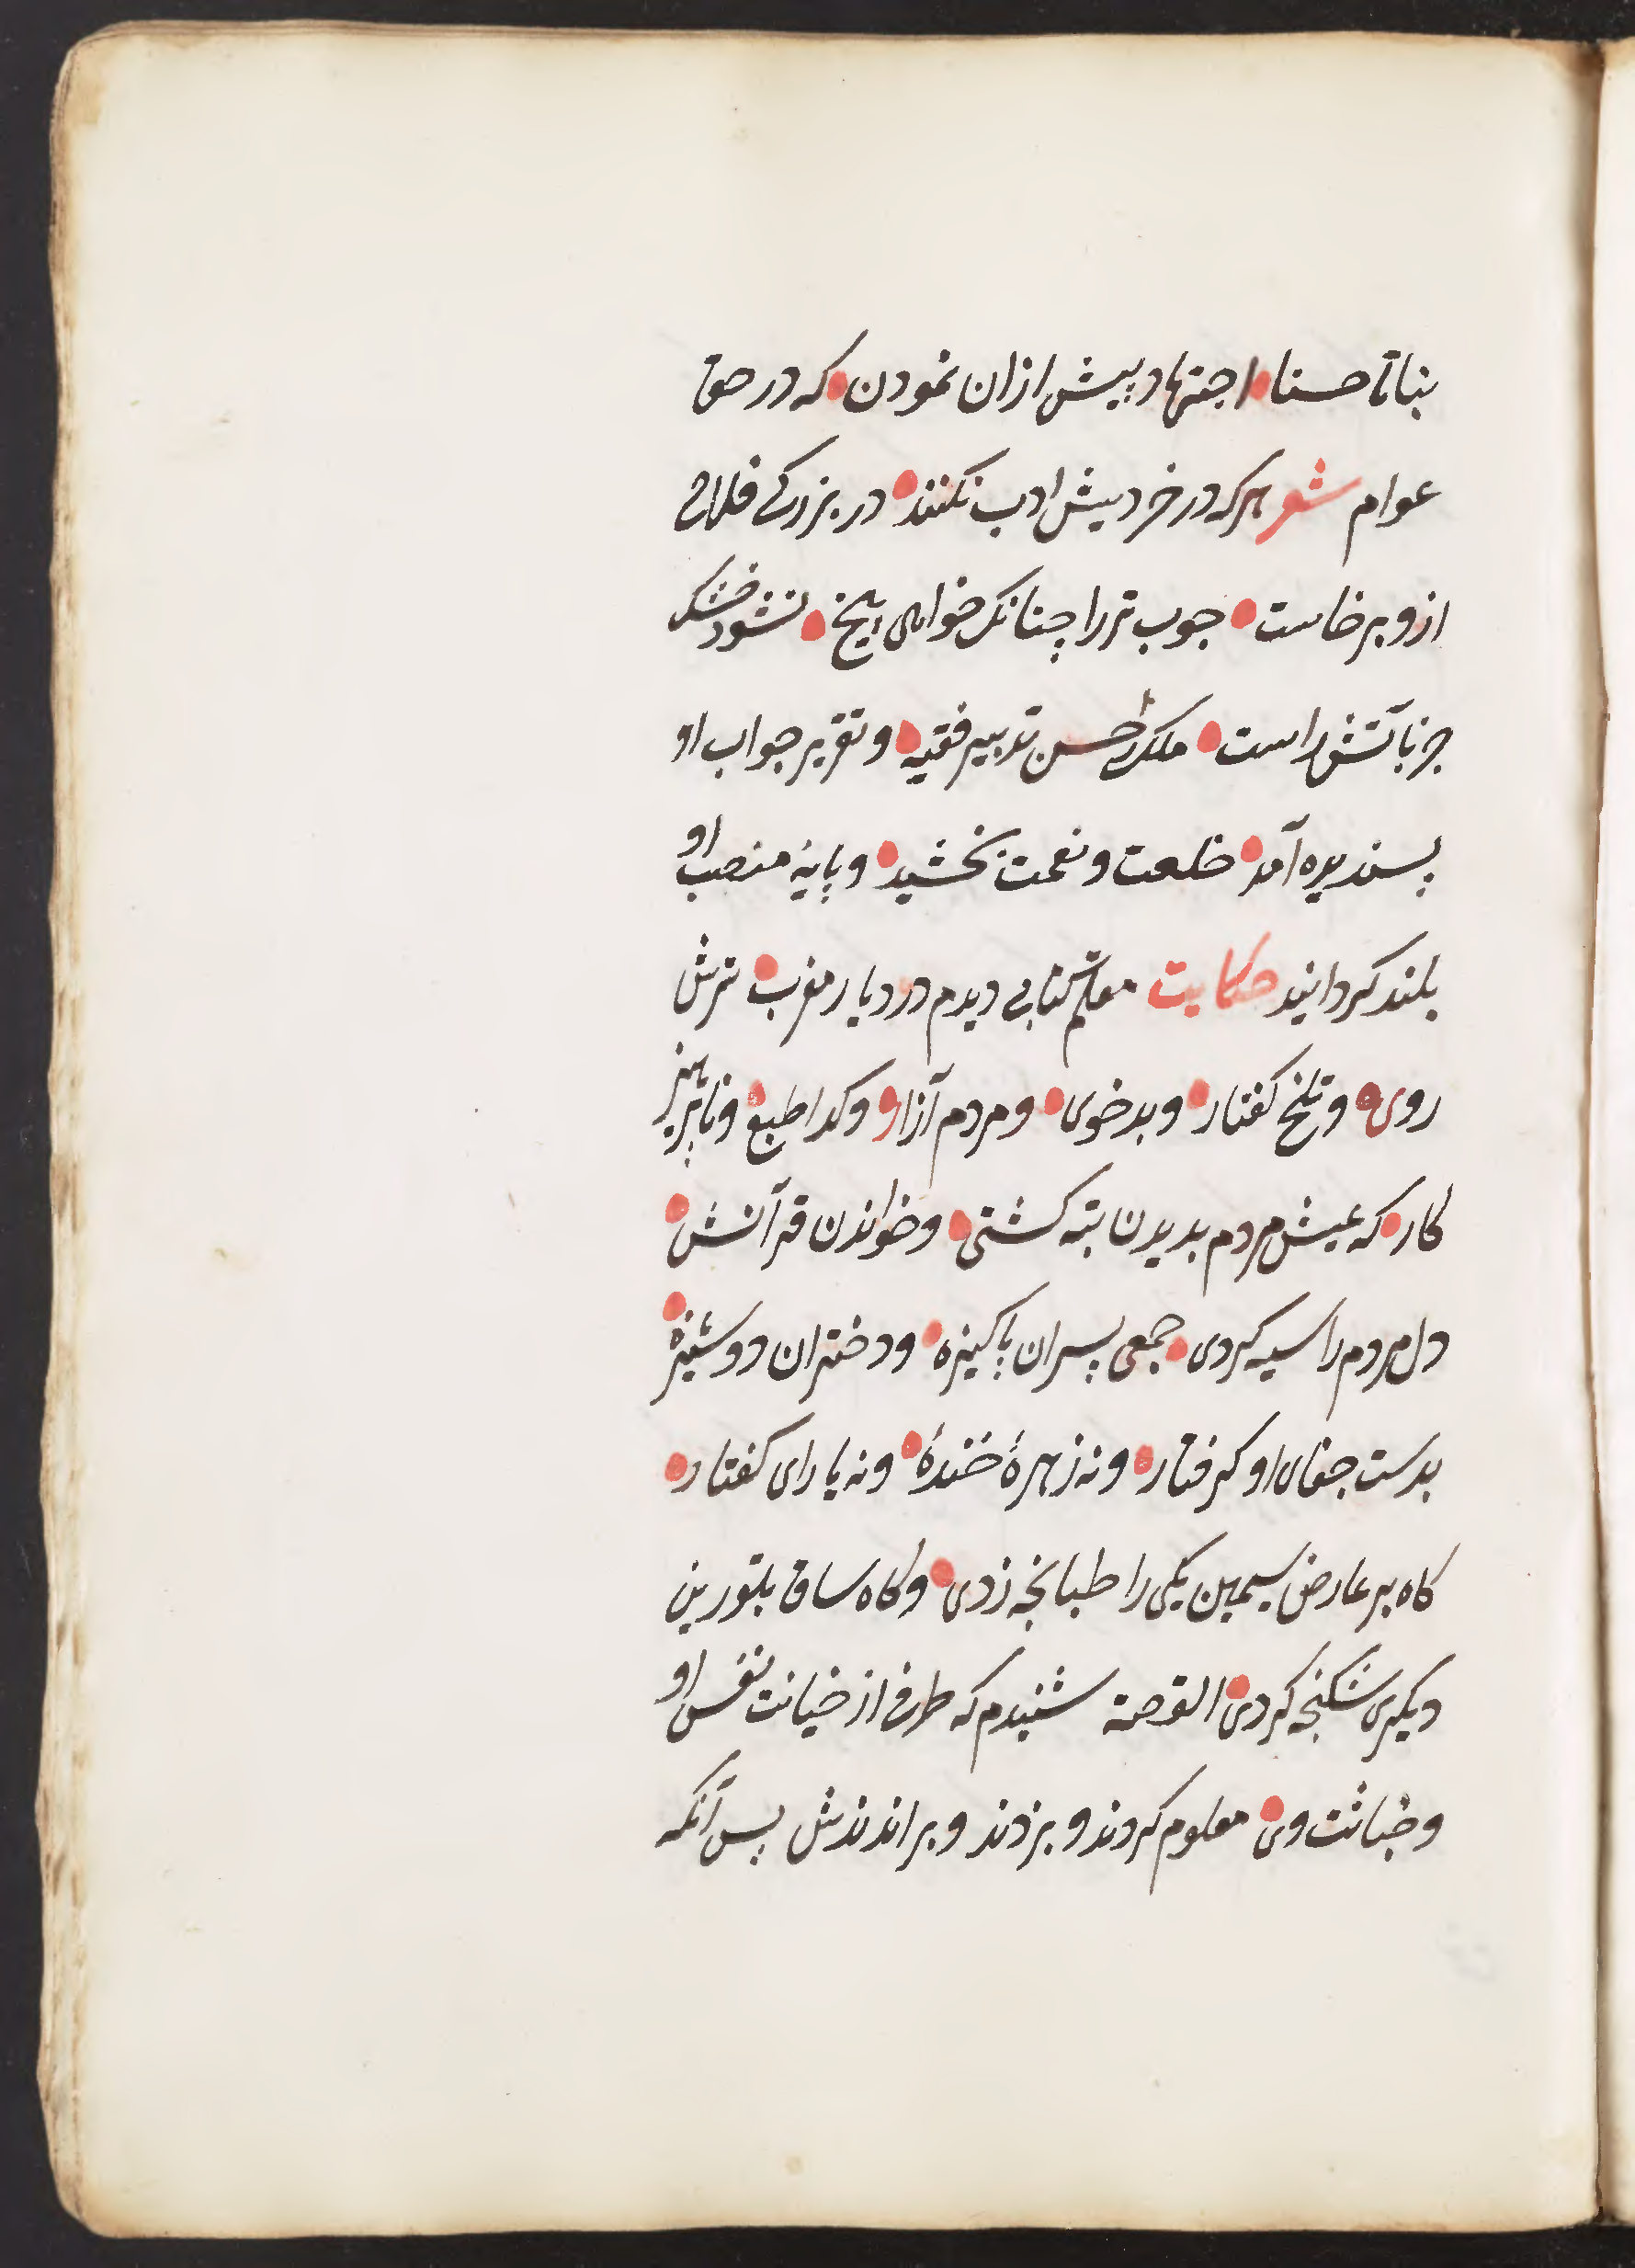 بناتا حسنا اجتهاد پیش ازان نمودن که در حق
عوام شعر هرکه در خردیش ادب نکنند در بزرکی فلاح
ازو برخاست جوب تر را چنانک خواهی پیچ نشود خشک
جز بآتش راست ملک را حسن تدبیر فقیه و تقریر جواب او
پسندیده آمد خلعت و نعمت بخشید و پایهٔ منصب او
بلند کردانید حکایت معلم کتابی دیدم در دیار مغرب ترش
روی و تلخ کفتار و بدخوی و مردم آزار و کدا طبع و ناپرهیز
کار که عیش مردم بدیدن تبه کشتی و خواندن قرآنش
دل مردم را سیه کردی جمعی پسران پاکیزه و دختران دوشیزه
بدست جفای او کرفتار و نه زهرهٔ خندهٔ و نه یارای کفتار
کاه بر عارض سیمین یکی را طبانجه زدی و کاه ساق بلورین
دیکری شکنجه کردی القصه شنیدم که طرفی از خیانت نفس او
و خباثت وی معلوم کردند و بزدند و براندندش پس آنکه